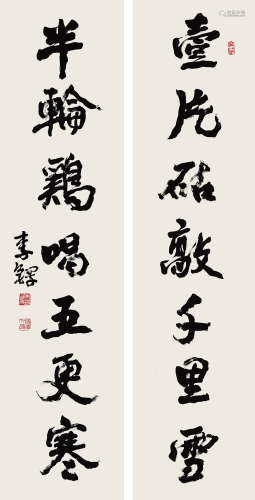 壹片砧敲千里雪
半輪鷄唱五更寒
李鐸